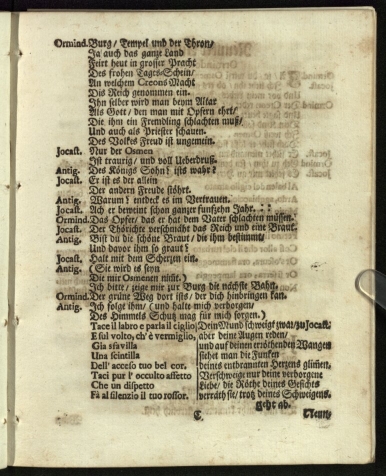 Ormind. Burg/ Tempel und der Thron/
Ja auch das gantze Land
Feirt heut in grosser Pracht
Des frohen Tages-Schein/
An welchem Creons Macht
Dis Reich genommen ein.
Ihn selber wird man beym Altar
Als Gott/ den man mit Opfern ehrt/
Die ihm ein Frembdling schlachten muß/
Und auch als Priester schauen.
Des Volkes Freud ist ungemein.
Jocast. Nur der Osmen
Ist traurig/ und voll Ueberdruß.
Antig. Des Königs Sohn? ists wahr?
Jocast. Er ist es der allein
Der andern Freude stöhrt.
Antig. Warum? entdekt es im Vertrauen.
Jocast. Ach er beweint schon gantzer funfzehn Jahr. : :
Ormind. Das Opfer/ das er hat dem Vater schlachten müssen.
Jocast. Der Thörichte verschmäht das Reich und eine Braut.
Antig. Bist du die schöne Braut/ die ihm bestimmt/
Und davor ihm so graut?
Jocast. Halt mit dem Scherzen ein.
Antig. (Sie wird es seyn
Die mir Osmenen nimt.)
Ich bitte/ zeige mir zur Burg die nächste Bahn.
Ormind. Der grüne Weg dort ists/ der dich hinbringen kan.
Antig. Ich folge ihm/ (und halte mich verborgen/
Des Himmels Schutz mag für mich sorgen.)
Tace il labro e parla il ciglio Dein Mund schweigt zwar/ zu Jocast.
E sul volto, ch'è vermiglio, aber deine Augen reden/
Gia sfavilla und auf deinen erröthenden Wangen
Una scintilla siehet man die Funken
Dell' acceso tuo bel cor. deines entbrannten Herzens glim̃en.
Taci pur l' occulto affetto Verschweige nur deine verborgene
Che un dispetto Liebe/ die Röthe deines Gesichts
Fà al silenzio il tuo rossor. verräth sie/ trotz deines Schweigens.
geht ab.
C Neun,